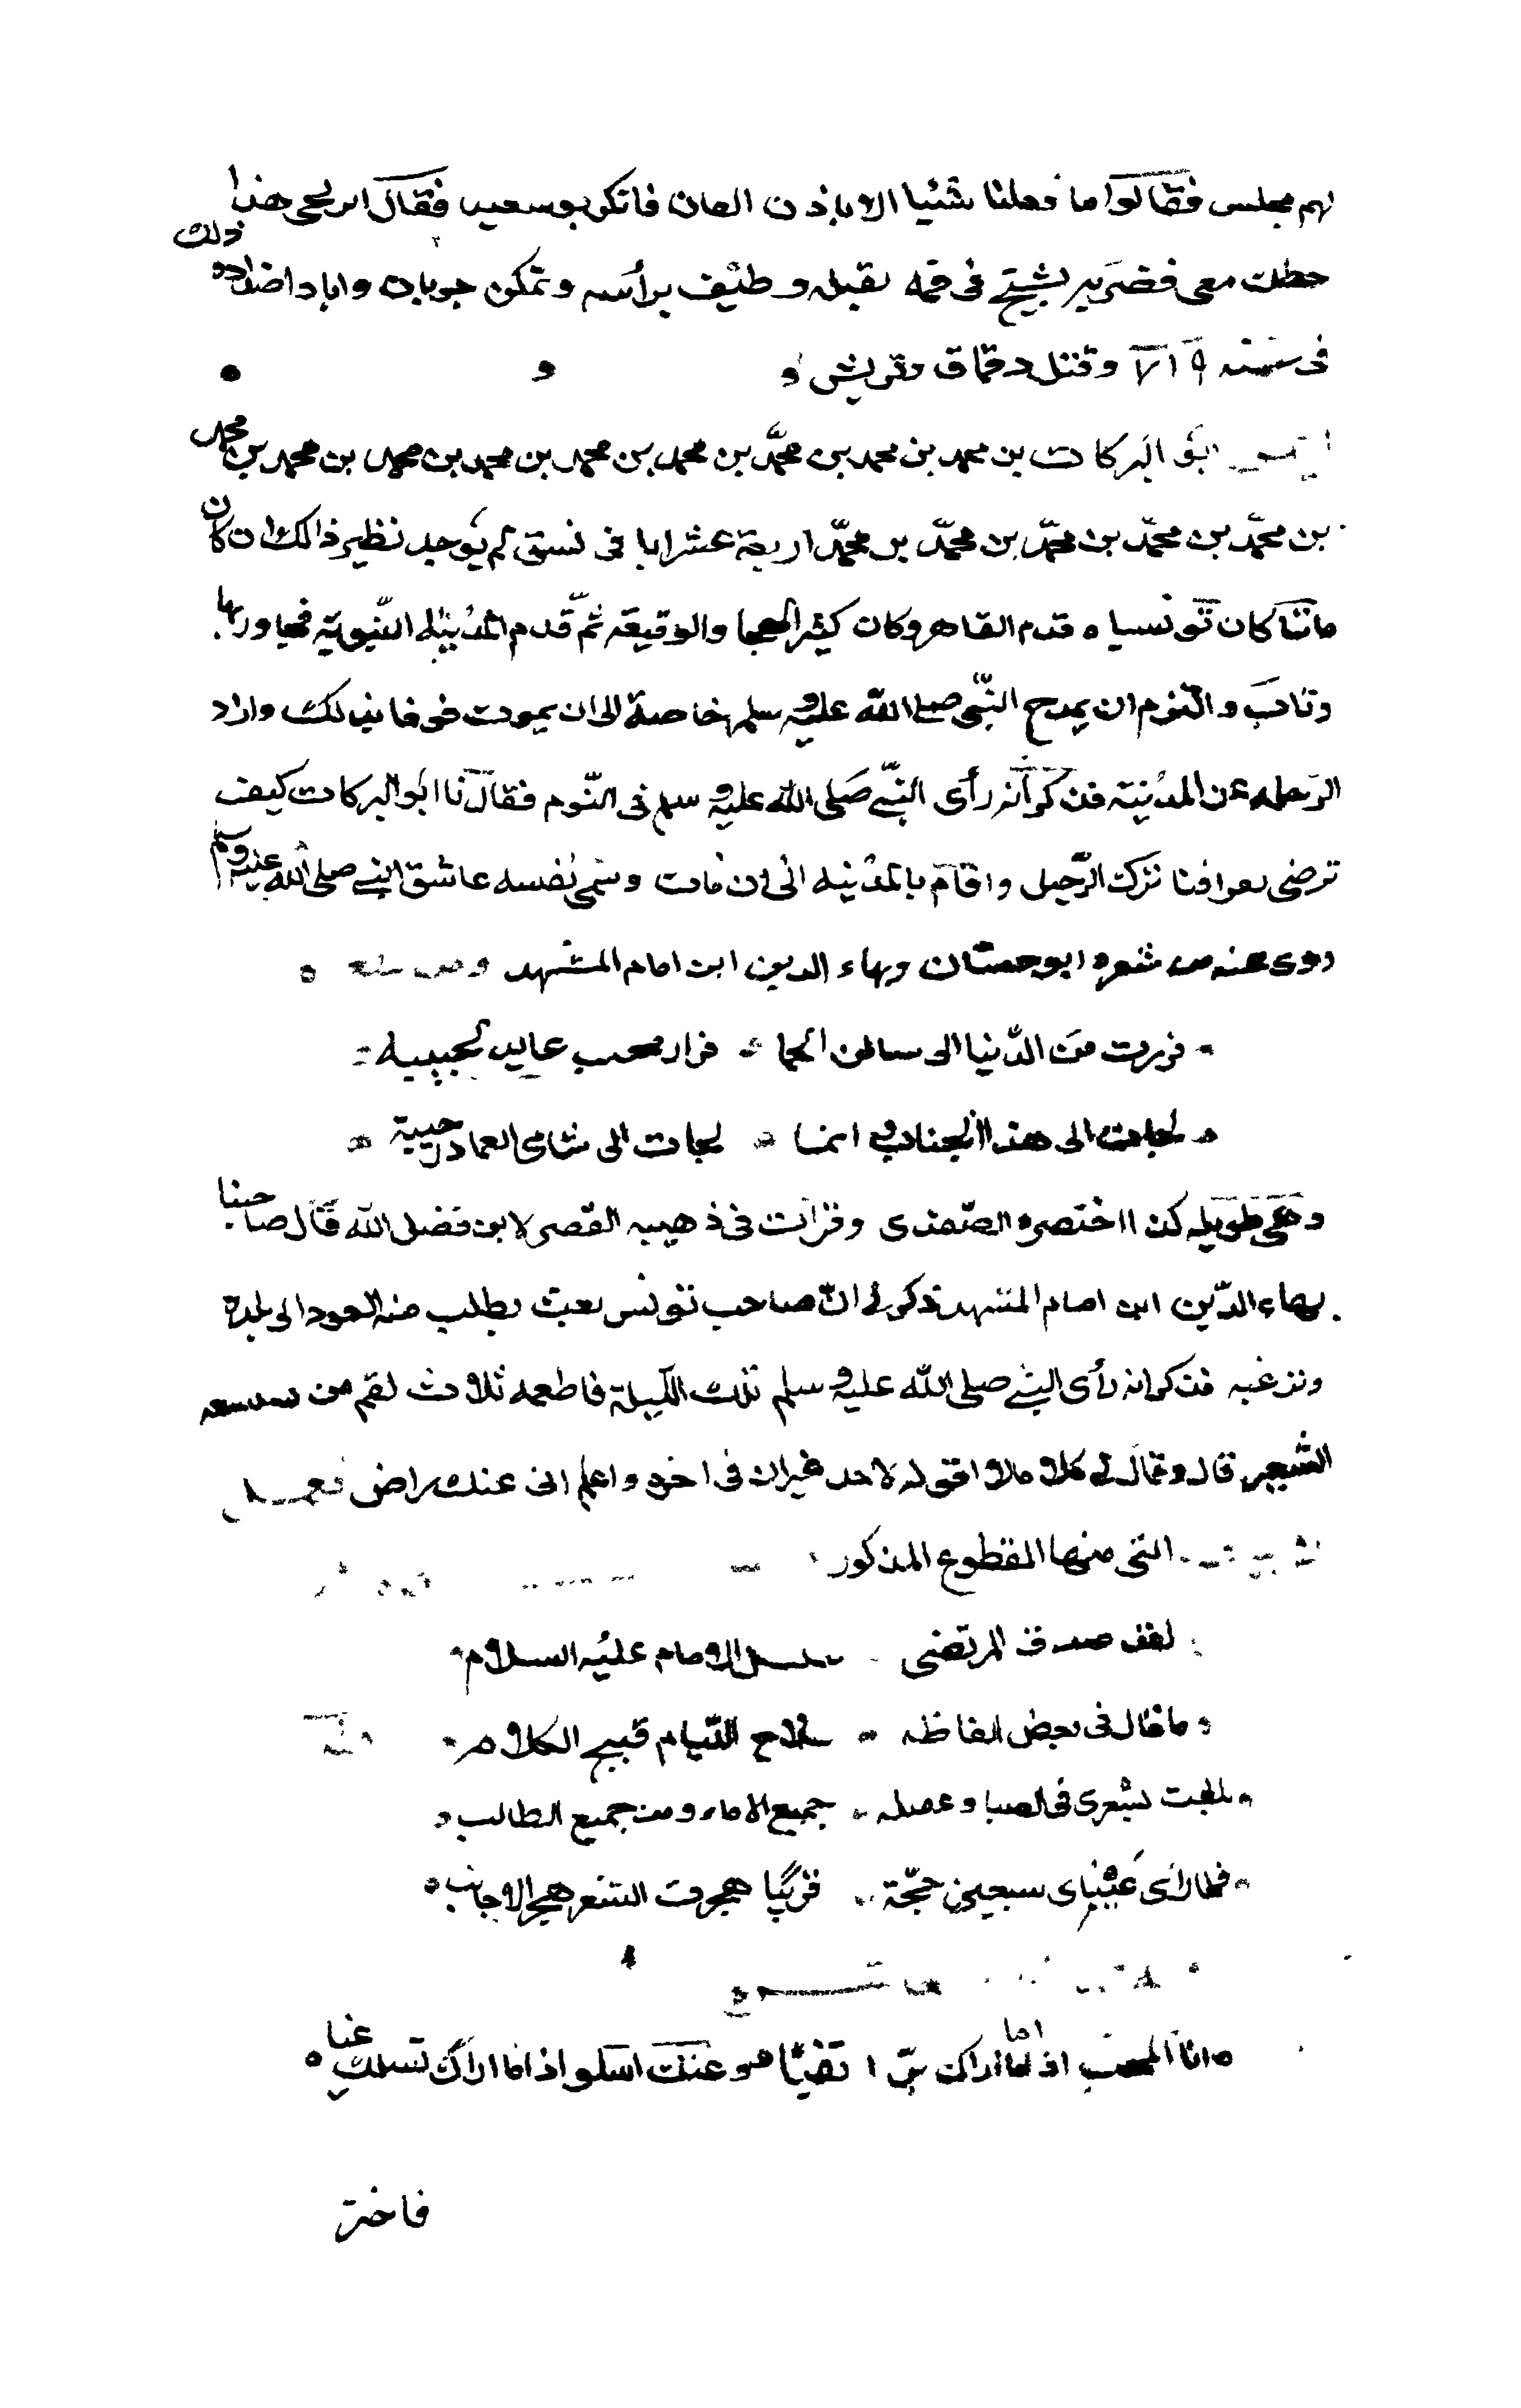 لهم مجلس فقالوا ما فعلنا شئيا الا باذن القان فانكر بوسعيد فقال ايرنجى هذا
خطك معى فضربه بشيخ فى فمه فقتله وطيف برأسه وتمكن جوبان واباد اضداده ذلك
فى سنة ٧١٩ وقتل دقماق وقريش
ابو البركات بن محمد بن محمد بن محمّد بن محمد بن محمد بن محمد بن محمد بن محمد بن محمد
بن محمّد بن محمّد بن محمّد بن محمّد بن محمّد اربعة عشر ابا فى نسق لم يوجد نظير ذالك ان كان
ثابتا كان تونسيا قدم القاهره وكان كثير الهجا والوقيعة ثمّ قدم المدينه النّبويّه فجاور بها
وتاب والتزم ان يمدح النّبى صلى اللّه عليه وسلم خاصة الى ان يموت فوفا بذالك واراد
الرّحله عن المدينة فذكر أنه رأى النّبى صَلى اللّه عليه وسلم فى النّوم فقال يا ابو البركات كيف
ترضى بفراقنا فترك الرّحيل واقام بالمدينه الى ان مات وسمى نفسه عاشق النبى صلى اللّه عليه وسلم
روى عنه من شعره ابو حيان وبهاء الدين ابن امام المشهد ومن
فررت من الدّنيا الى ساكن الحما فرار محب عايد لحبيبه
لجات الى هذا الجناب وانما لجات الى سامى العماد رحيبة
وهى طويله كذا اختصره الصّفدى وقرات فى ذهبيه القصر لابن فضل اللّه قال صاحبنا
بهاء الدّين ابن امام المشهد ذكر لى انّ صاحب تونس بعث يطلب منه العود الى بلده
ونرغبه فذكر انه رأى النبى صلى اللّه عليه وسلم تلك اللّيلة فاطعمه ثلاث لقم من
الشعير قال وقال لى كلاما لا اقوله لاحد غير ان فى اخره واعلم انى عنك راض
التى منها المقطوع المذكور
لقد صدق المرتضى الامام عليه السلام
وما قال فى بعض الفاظه سلاح اللّيام قبيح الكلام
بلغت بشعرى فى الصبا وعصله جميع الامانى من جميع المطالب
فلما رأى عينياى سبعين حجّة قريبًا هجرت الشعر هجر الاجانب
انا المحب اذا ما اراك تقيّا وعنك اسلو اذا ما اراك تسلك غيا
فاخر